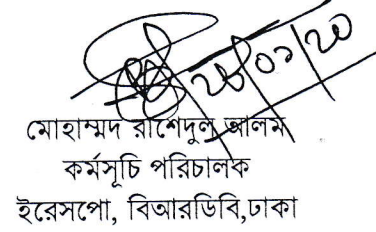 মোহাম্মদ রাশেদুল আলম
কর্মসূচি পরিচালক
ইরেসপো, বিআরডিবি,ঢাকা